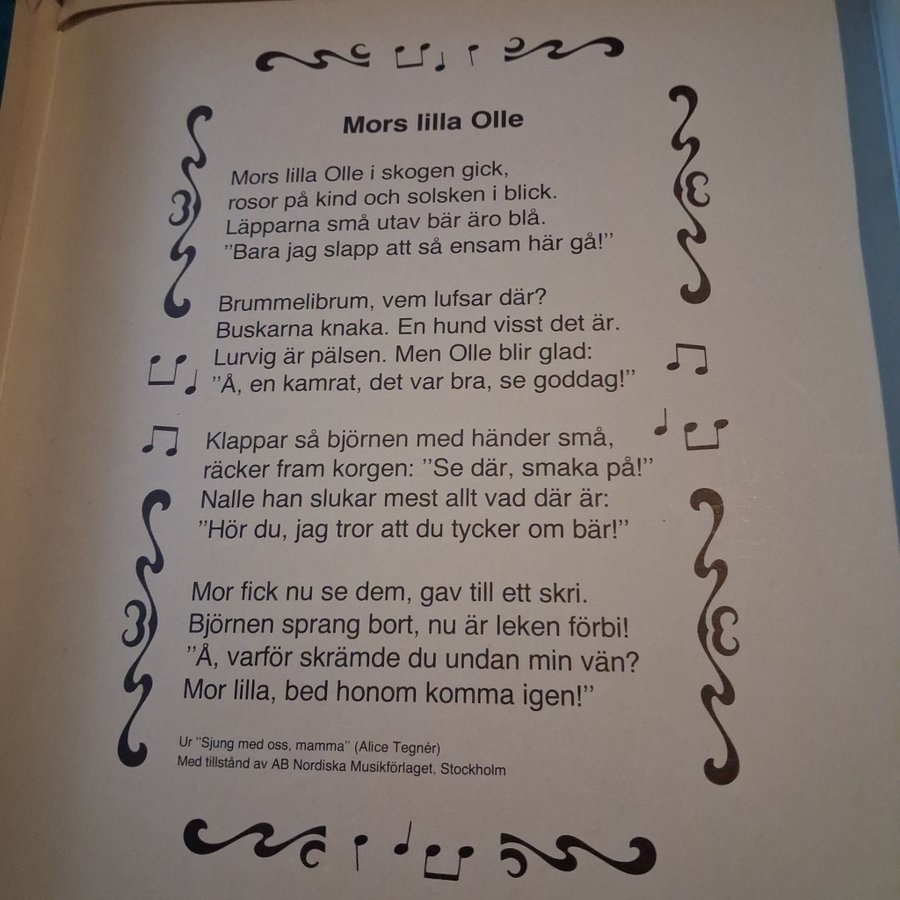 Mors lilla Olle
Mors lilla Olle i skogen gick,
rosor på kind och solsken i blick.
Läpparna små utav bär äro blå.
”Bara jag slapp att så ensam här gå!”
Brummelibrum, vem lufsar där?
Buskarna knaka. En hund visst det är.
Lurvig är pälsen. Men Olle blir glad:
”Å, en kamrat, det var bra, se goddag!”
Klappar så björnen med händer små,
räcker fram korgen: ”Se där, smaka på!”
Nalle han slukar mest allt vad där är:
”Hör du, jag tror att du tycker om bär!”
Mor fick nu se dem, gav till ett skri.
Björnen sprang bort, nu är leken förbi!
”Å, varför skrämde du undan min vän?
Mor lilla, bed honom komma igen!”
Ur ”Sjung med oss, mamma” (Alice Tegnér)
Med tillstånd av AB Nordiska Musikförlaget, Stockholm